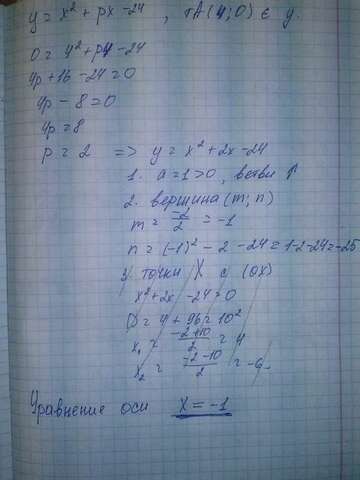 y = x² + px - 24 , тА(4; 0) ∈ y.
0 = 4² + p4 - 24
4p + 16 - 24 = 0
4p - 8 = 0
4p = 8
p = 2 => y = x² + 2x - 24
1. a = 1 > 0, ветви ↑
2. вершина (m; n)
m = -2/2 = -1
n = (-1)² - 2 - 24 = 1-2-24 = -25
3) точки X с (OX)
x² + 2x - 24 = 0
D = 4 + 96 = 10²
x₁ = (-2+10)/2 = 4
x₂ = (-2-10)/2 = -6
Уравнение оси x = -1